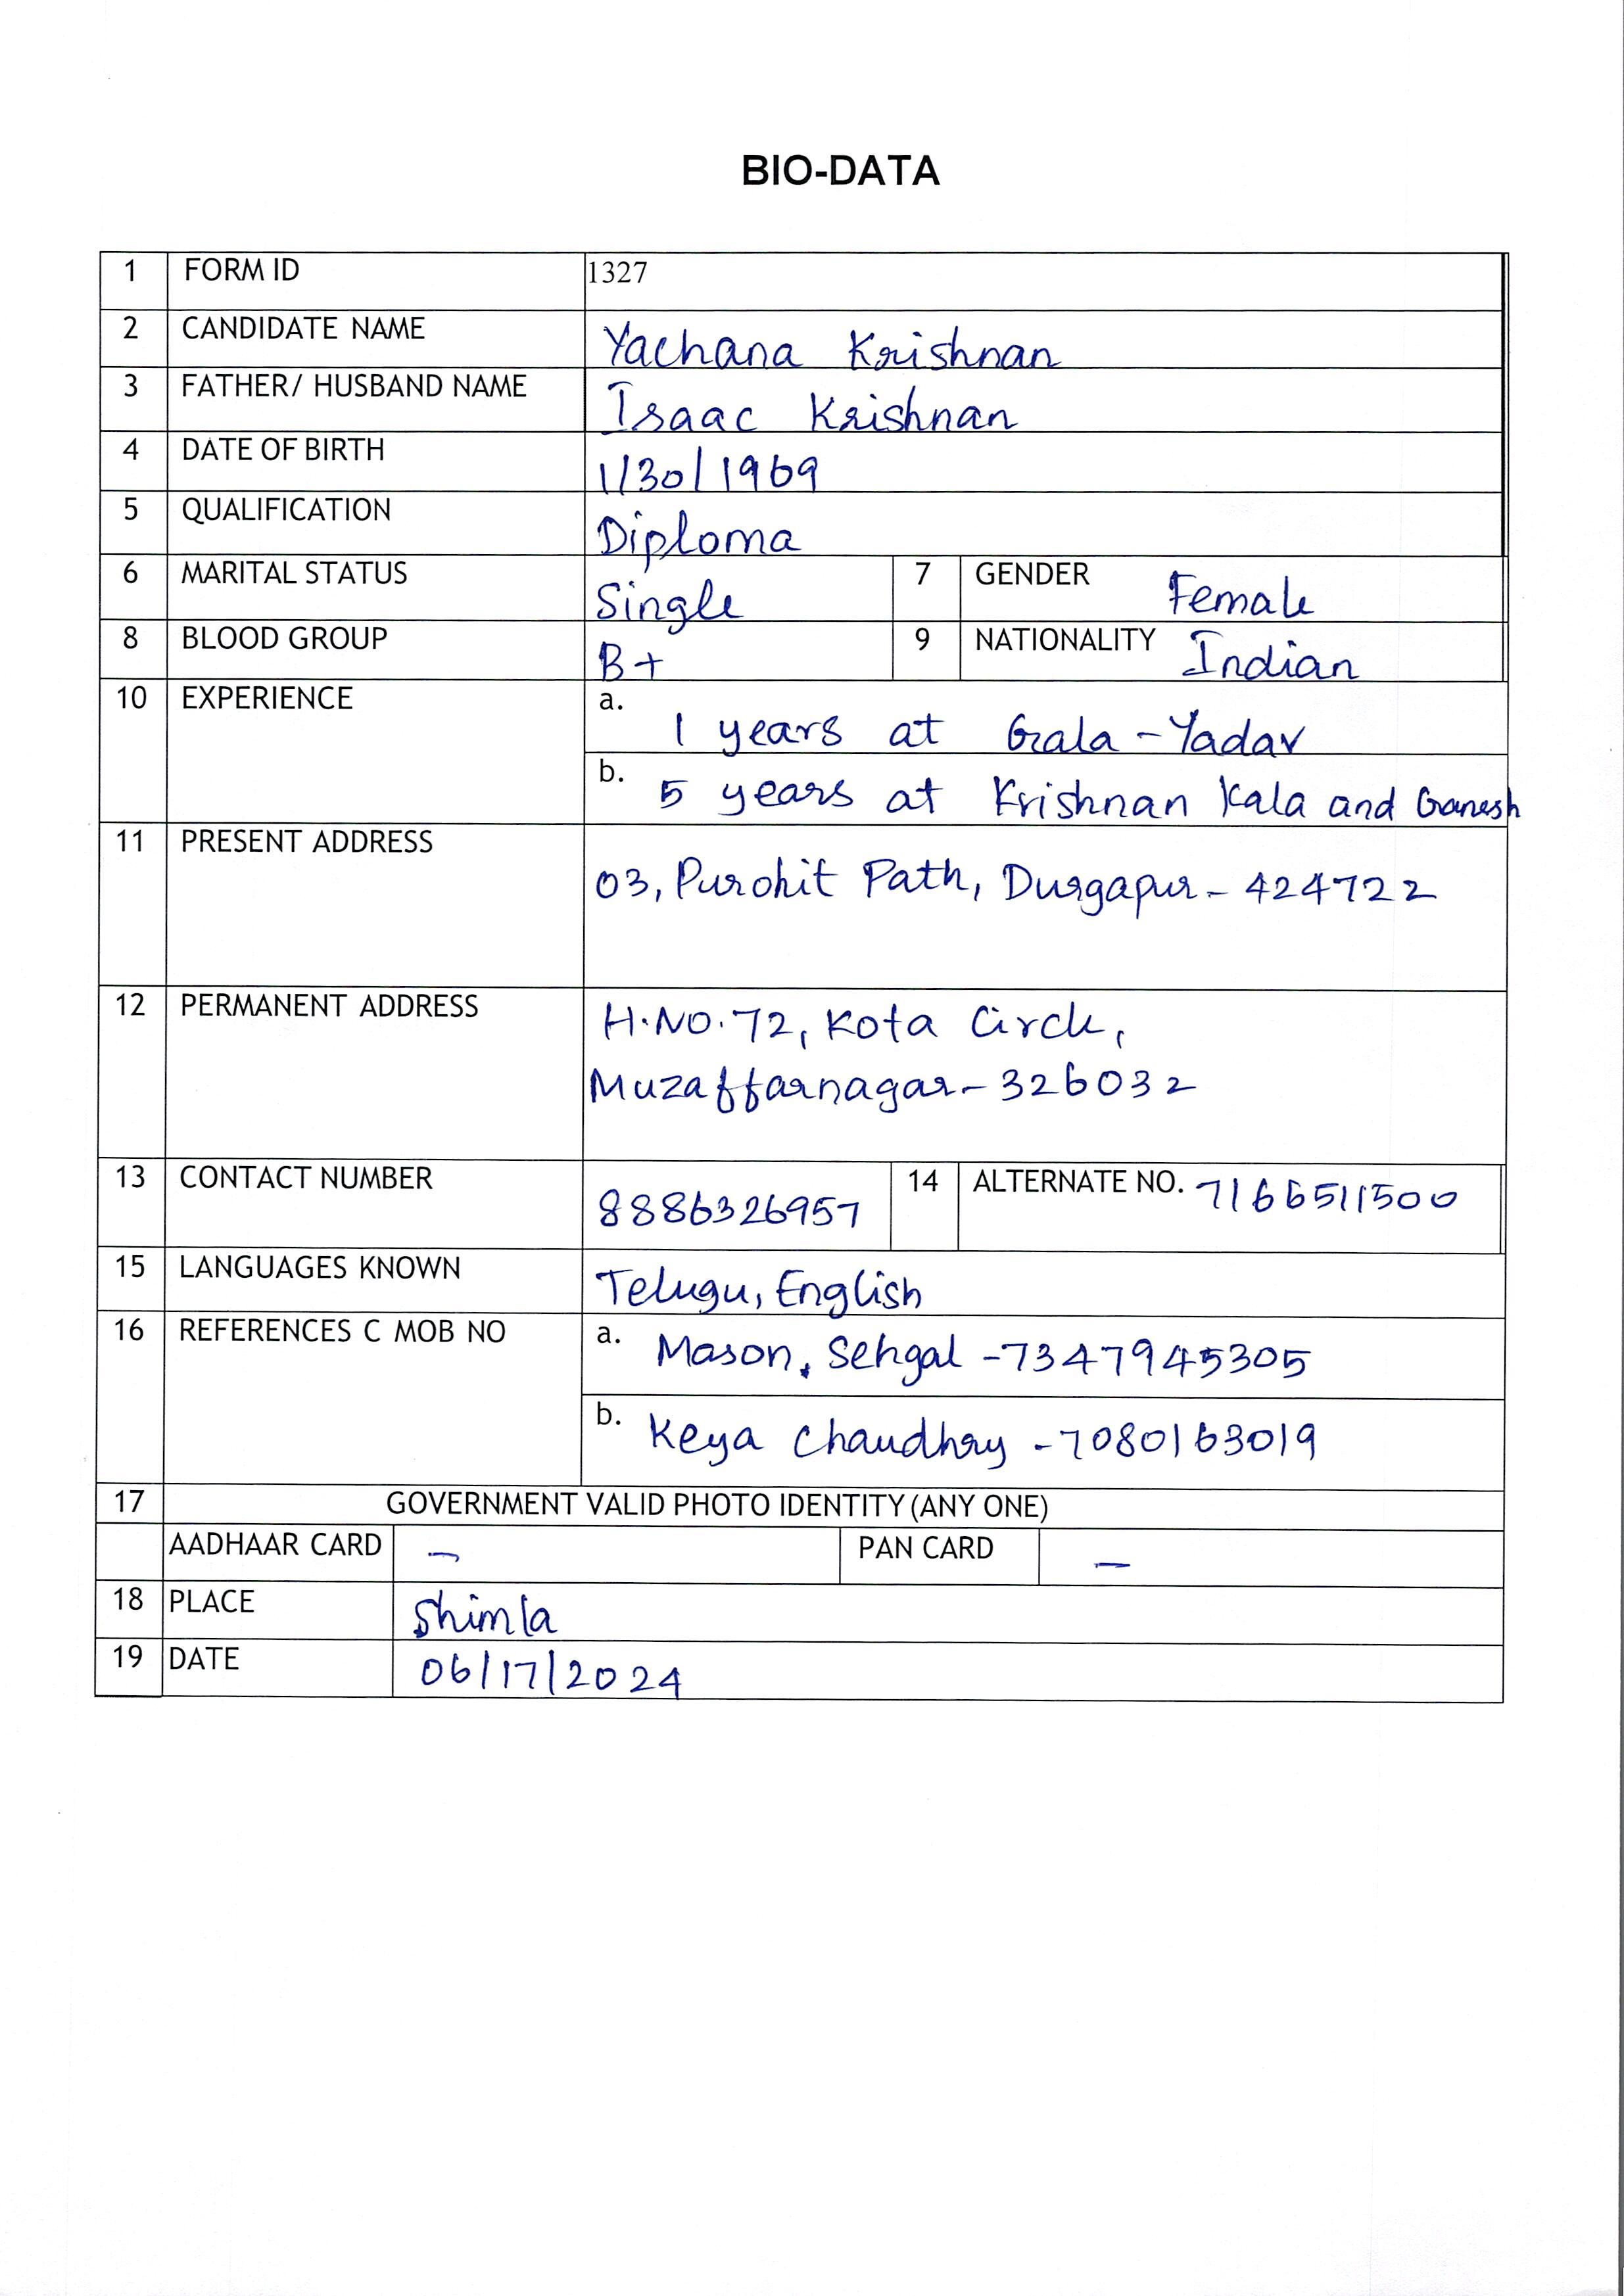 BIO-DATA
1 FORM ID 1327
2 CANDIDATE NAME Yachana Krishnan
3 FATHER/ HUSBAND NAME Isaac Krishnan
4 DATE OF BIRTH 1/30/1969
5 QUALIFICATION Diploma
6 MARITAL STATUS Single 7 GENDER Female
8 BLOOD GROUP B+ 9 NATIONALITY Indian
10 EXPERIENCE a. 1 years at Gala-Yadav
b. 5 years at Krishnan Kala and Ganesh
11 PRESENT ADDRESS 03, Purohit Path, Durgapur- 424722
12 PERMANENT ADDRESS H.NO.72, Kota Circle,
Muzaffarnagar-326032
13 CONTACT NUMBER 8886326957 14 ALTERNATE NO. 7166511500
15 LANGUAGES KNOWN Telugu, English
16 REFERENCES C MOB NO a. Mason, Sehgal -7347945305
b. Keya Chaudhry -7080163019
17 GOVERNMENT VALID PHOTO IDENTITY (ANY ONE)
AADHAAR CARD - PAN CARD -
18 PLACE Shimla
19 DATE 06/17/2024